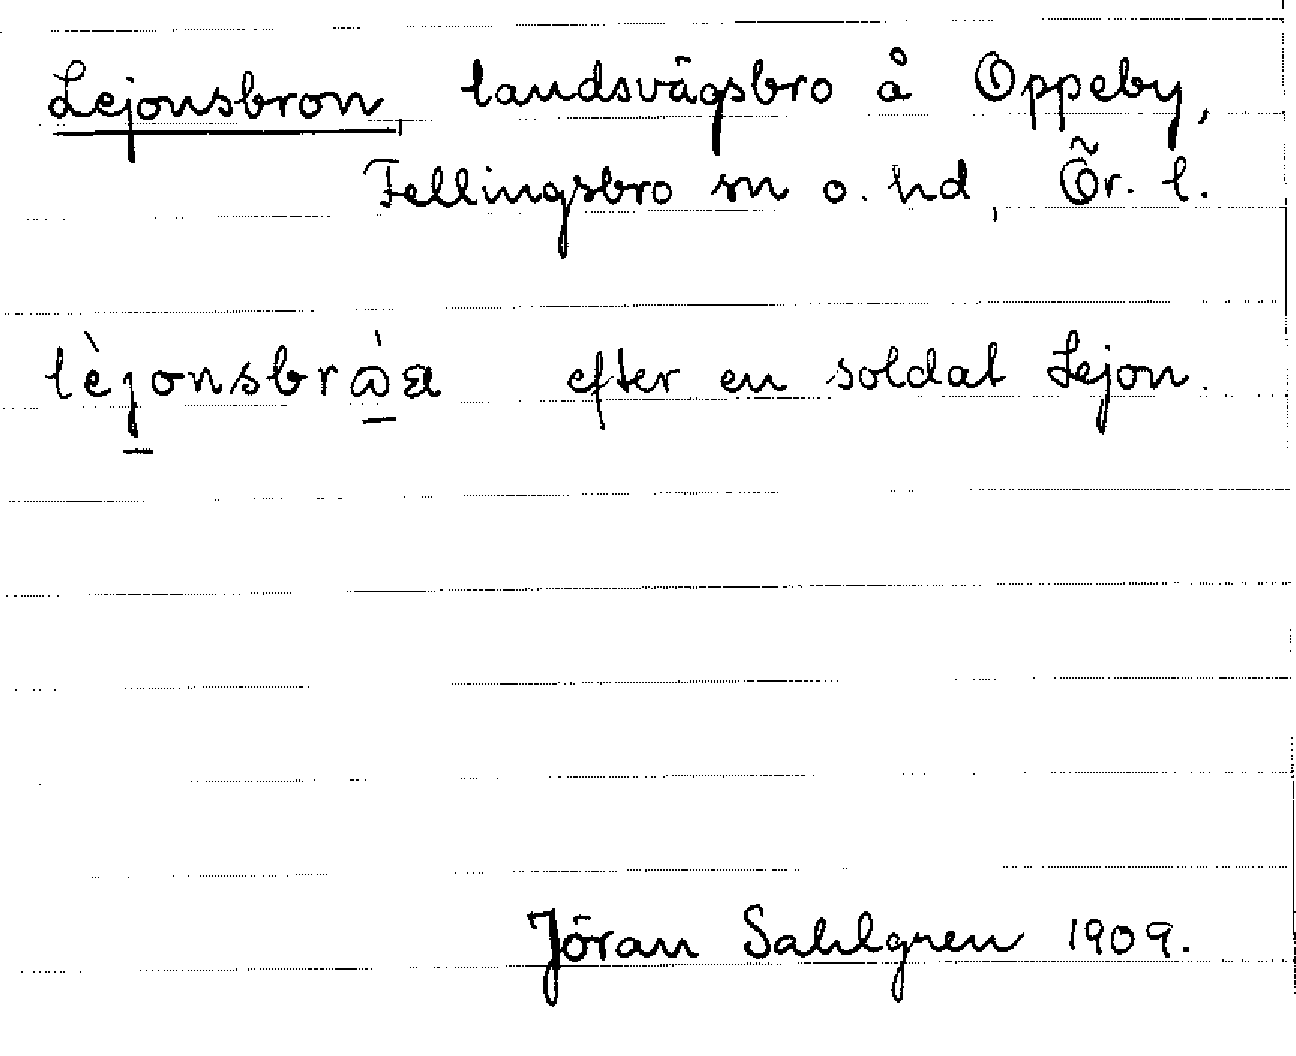 Lejonsbron, landsvägsbro å Oppeby,
Fellingsbro sn o. hd, Ör. l.
lèjonsbrὼa efter en soldat Lejon.
Jöran Sahlgren 1909.